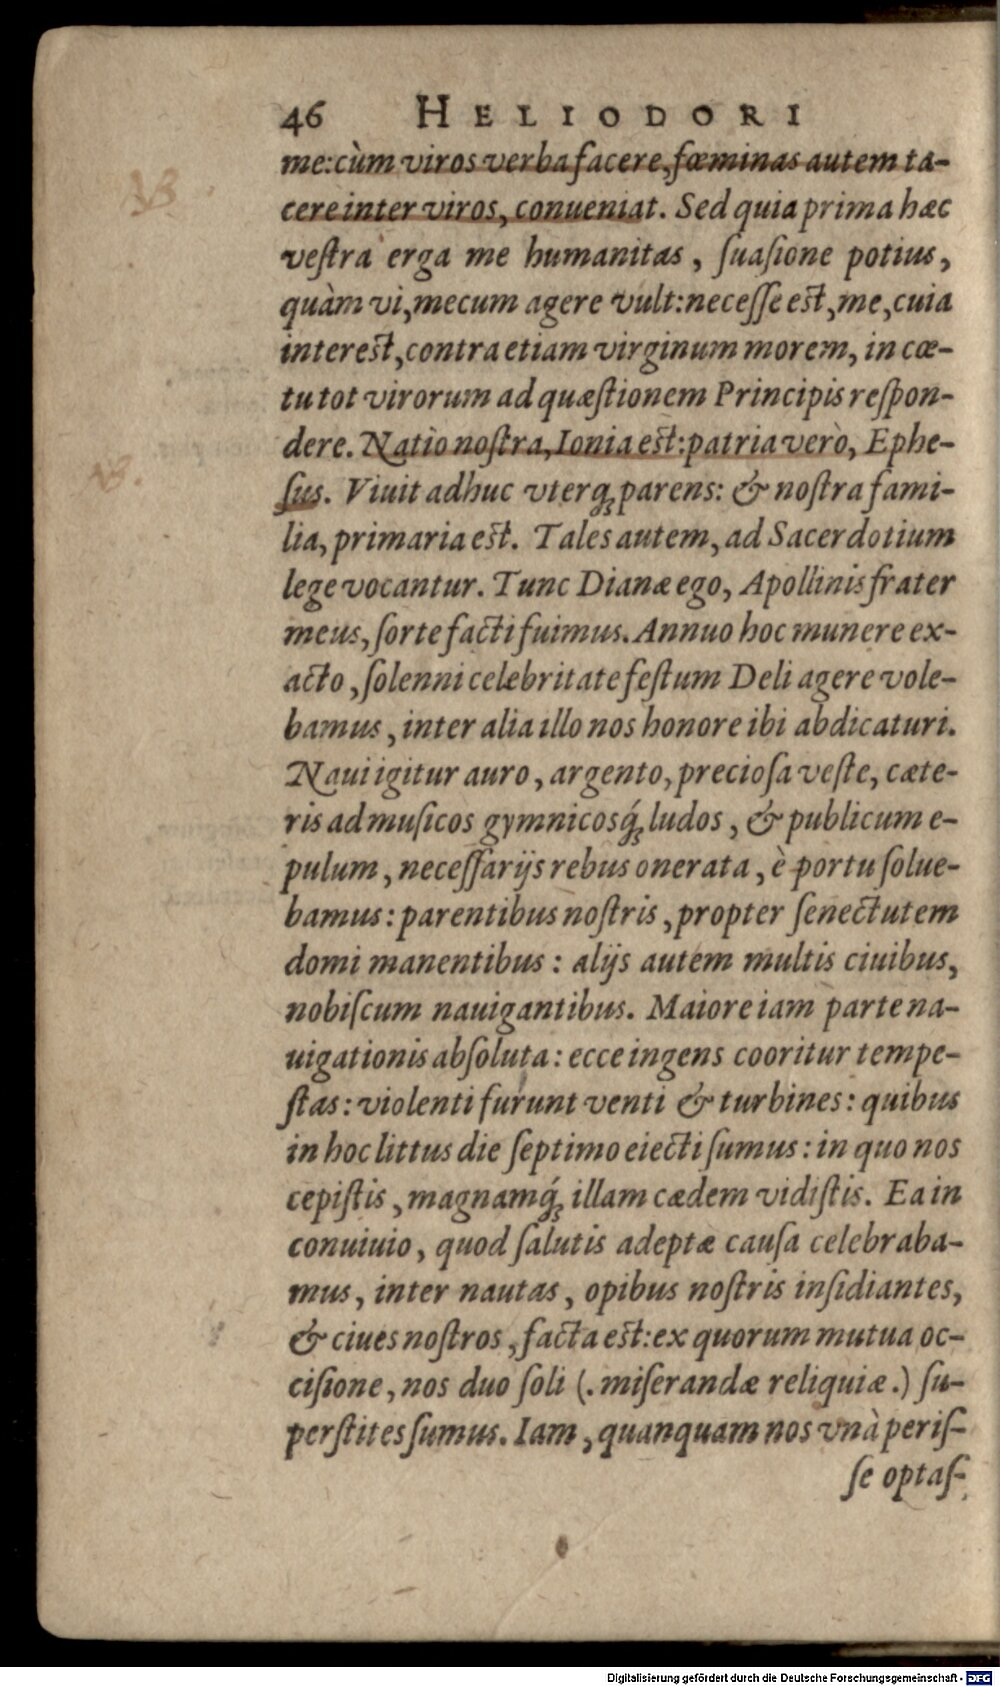 46 HELIODORI
NB
me: cùm viros verba facere, fœminas autem ta-
cere inter viros, conueniat. Sed quia prima hæc
veſtra erga me humanitas, ſuaſione potius,
quàm vi, mecum agere vult: neceſſe eſt, me, cuia
intereſt, contra etiam virginum morem, in cœ-
tu tot virorum ad quæſtionem Principis reſpon-
dere. Natio noſtra, Ionia eſt: patria verò, Ephe-
NB.
ſus. Viuit adhuc vterq; parens: & noſtra fami-
lia, primaria eſt. Tales autem, ad Sacerdotium
lege vocantur. Tunc Dianæ ego, Apollinis frater
meus, ſorte facti fuimus. Annuo hoc munere ex-
acto, ſolenni celebritate feſtum Deli agere vole-
bamus, inter alia illo nos honore ibi abdicaturi.
Naui igitur auro, argento, precioſa veſte, cæte-
ris ad muſicos gymnicosq́; ludos, & publicum e-
pulum, neceſſarijs rebus onerata, è portu ſolue-
bamus: parentibus noſtris, propter ſenectutem
domi manentibus: alijs autem multis ciuibus,
nobiſcum nauigantibus. Maiore iam parte na-
uigationis abſoluta: ecce ingens cooritur tempe-
ſtas: violenti furunt venti & turbines: quibus
in hoc littus die ſeptimo eiecti ſumus: in quo nos
cepiſtis, magnamq́; illam cædem vidiſtis. Ea in
conuiuio, quod ſalutis adeptæ cauſa celebraba-
mus, inter nautas, opibus noſtris inſidiantes,
& ciues noſtros, facta eſt: ex quorum mutua oc-
ciſione, nos duo ſoli (. miſerandæ reliquiæ .) ſu-
perſtites ſumus. Iam, quanquam nos vnà periſ-
ſe optaſ-
Digitalisierung gefördert durch die Deutsche Forschungsgemeinschaft - DFG